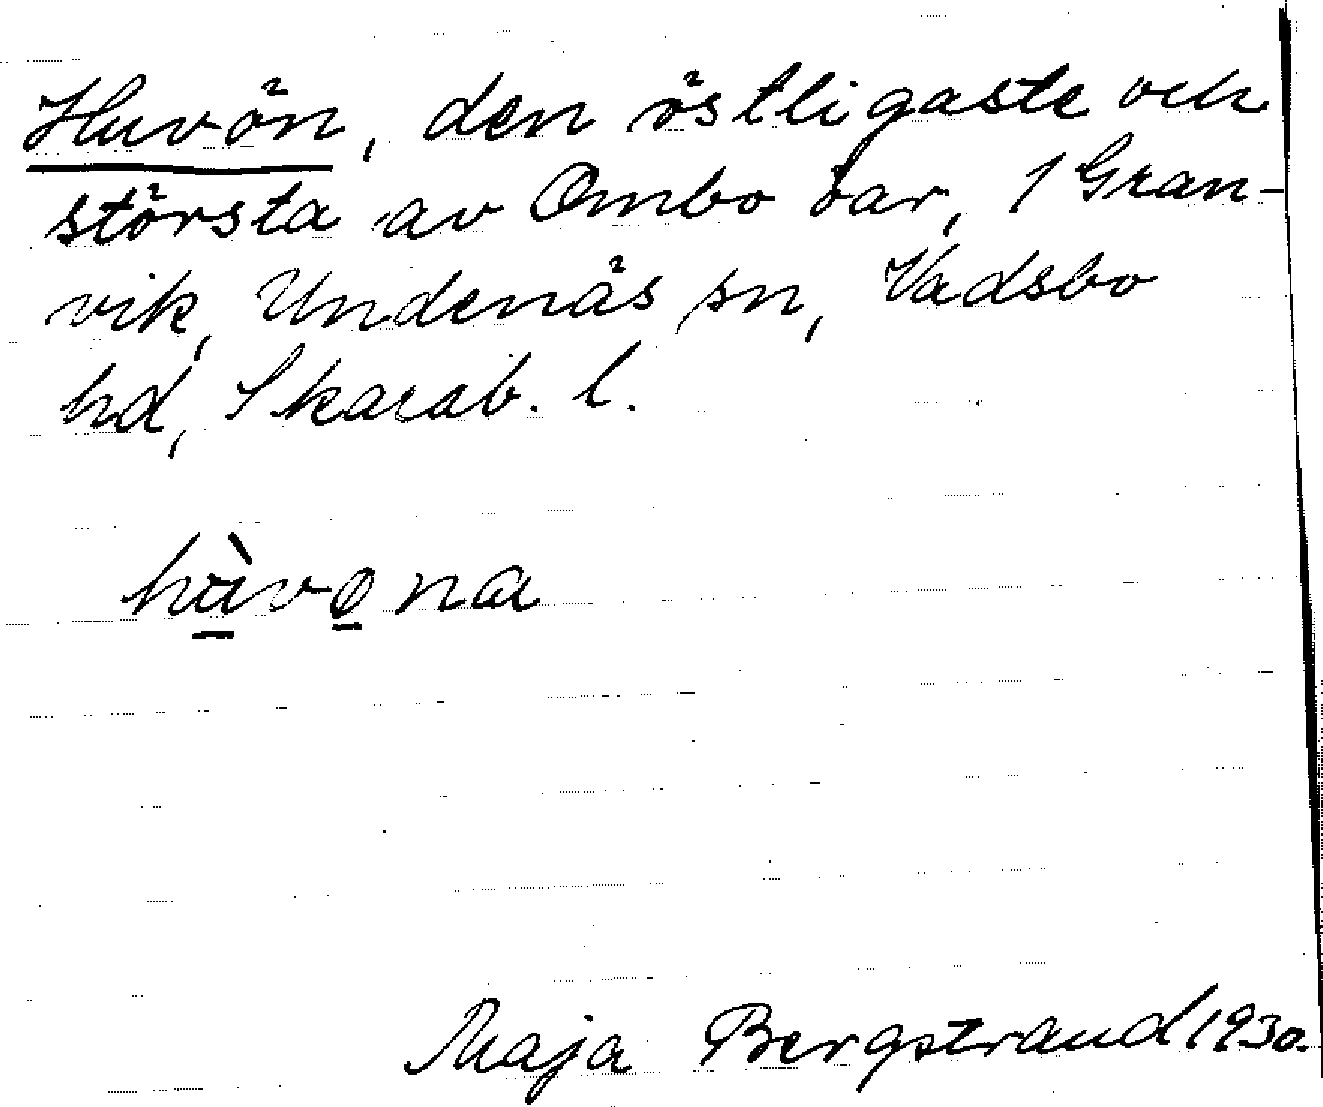 Huvön, den östligaste och
största av Ombo öar, 1 Gran-
vik, Undenäs sn, Vadsbo
hd, Skarab. l.
hùvøna
Maja Bergstrand 1930.